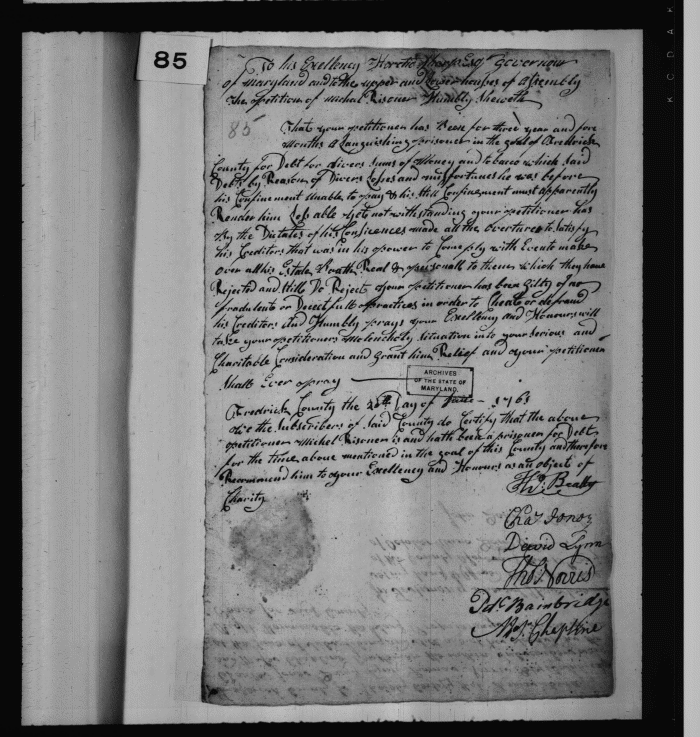 85
To his Excellency Horatio Sharpe Esqr Governour
of Maryland and to the upper and Lower houses of Assembly
The petition of Michal Risoner Humbly Sheweth
85
That your petitioner has Been for three year and five
Months A Languishing prisoner in the goal of Fredrick
County for Debt for divers Sums of Money and tobacco which said
Debts by Reason of Divers Losses and missfortunes he was before
his Confinement Unable to pay & his Still Confinement must apparently
Render him Less able yet not withstanding your petitioner has
By the Dictates of his Consciences made all the overtures to Satisfy
his Creditors that was in his power to Comply with Even to make
over all his Estate Boath Real & personall to them which they have
Rejected and Still Do Reject your petitioner has been Gilty of no
fradulente or Deceitfull practices in order to Cheat or defraud
his Creditors And Humbly prays your Excellency and Honours will
take your petitioners Melencholy Situation into your Serious and
Charitable Consideration and Grant him Relief and your petitioner
Shall Ever pray
ARCHIVES
OF THE STATE OF
MARYLAND.
Fredrick County the Day of 1763
We the Subscribers of Said County do Certify that the above
petitioner Michel Risoner is and hath been a prisoner for Debt
for the time above mentioned in the goal of this County and therefore
Recommend him to your Excellency and Honours as an object of
Charity
Thos. Beatty
Chas Jones
David Lynn
Thos Norris
Petr Bainbridge
Chapline